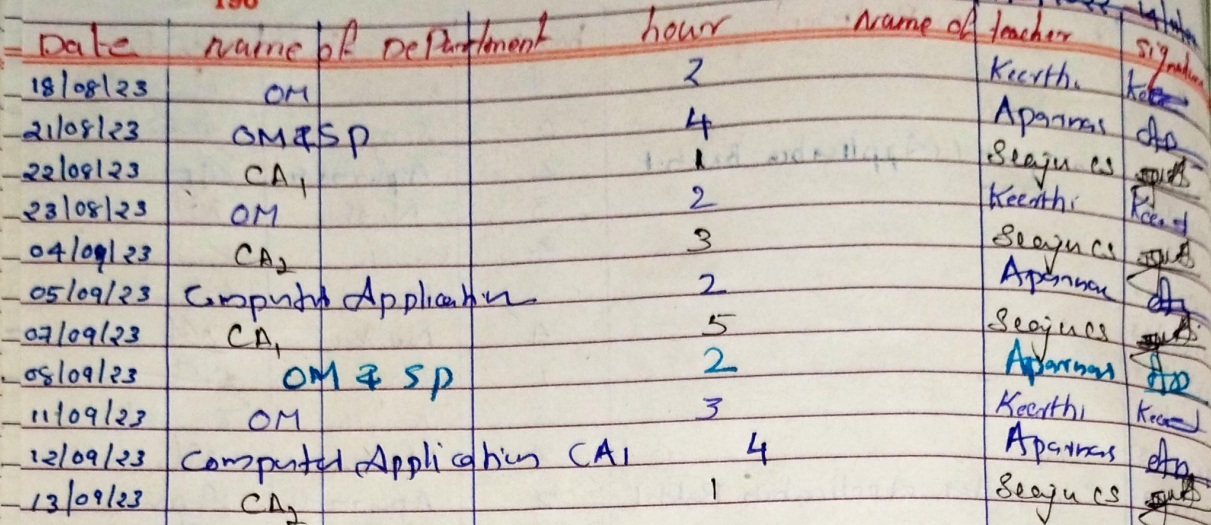 198
Date Name of Department hour Name of teacher Signature
18/08/23 OM 2 Keerthi
21/08/23 OM & SP 4 Aparnas
22/08/23 CA1 1 Seaju cs
23/08/23 OM 2 Keerthi
04/09/23 CA2 3 Seaju cs
05/09/23 Computer Application 2 Aparnas
07/09/23 CA1 5 Seaju cs
08/09/23 OM & SP 2 Aparnas
11/09/23 OM 3 Keerthi
12/09/23 Computer Application CA1 4 Aparnas
13/09/23 CA2 1 Seaju cs